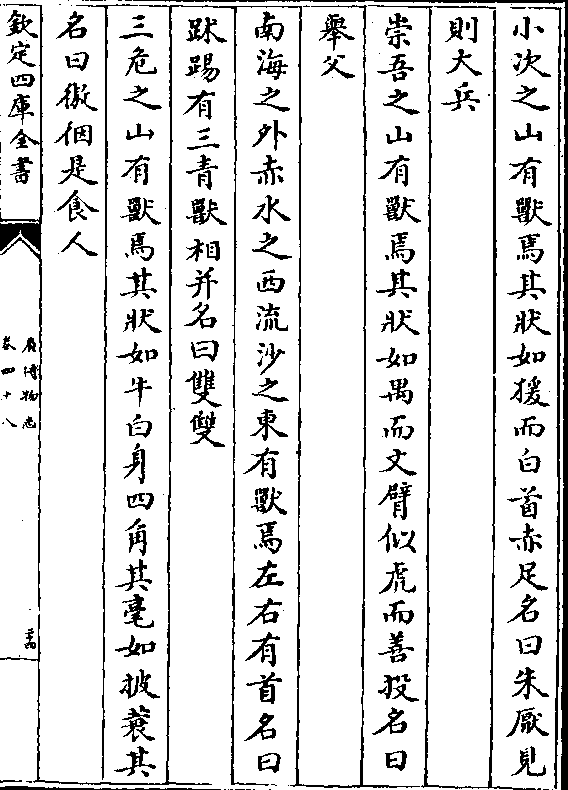 小次之山有獸焉其狀如猨而白首赤足名曰朱厭見
則大兵
崇吾之山有獸焉其狀如禺而文臂似虎而善投名曰
舉父
南海之外赤水之西流沙之東有獸焉左右有首名曰
跊踢有三青獸相并名曰雙雙
三危之山有獸焉其狀如牛白身四角其毫如披蓑其
名曰㺊𢓨是食人
欽定四庫全書
廣博物志
卷四十八